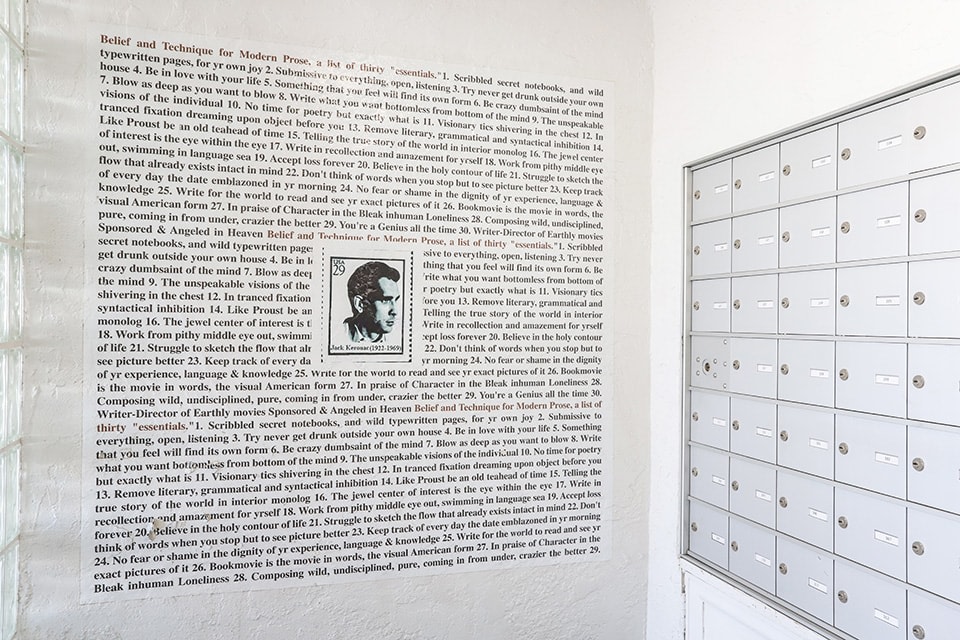 Belief and Technique for Modern Prose, a list of thirty "essentials."1. Scribbled secret notebooks, and wild
typewritten pages, for yr own joy 2. Submissive to everything, open, listening 3. Try never get drunk outside your own
house 4. Be in love with your life 5. Something that you feel will find its own form 6. Be crazy dumbsaint of the mind
7. Blow as deep as you want to blow 8. Write what you want bottomless from bottom of the mind 9. The unspeakable
visions of the individual 10. No time for poetry but exactly what is 11. Visionary tics shivering in the chest 12. In
tranced fixation dreaming upon object before you 13. Remove literary, grammatical and syntactical inhibition 14.
Like Proust be an old teahead of time 15. Telling the true story of the world in interior monolog 16. The jewel center
of interest is the eye within the eye 17. Write in recollection and amazement for yrself 18. Work from pithy middle eye
out, swimming in language sea 19. Accept loss forever 20. Believe in the holy contour of life 21. Struggle to sketch the
flow that already exists intact in mind 22. Don't think of words when you stop but to see picture better 23. Keep track
of every day the date emblazoned in yr morning 24. No fear or shame in the dignity of yr experience, language &
knowledge 25. Write for the world to read and see yr exact pictures of it 26. Bookmovie is the movie in words, the
visual American form 27. In praise of Character in the Bleak inhuman Loneliness 28. Composing wild, undisciplined,
pure, coming in from under, crazier the better 29. You're a Genius all the time 30. Writer-Director of Earthly movies
Sponsored & Angeled in Heaven Belief and Technique for Modern Prose, a list of thirty "essentials."1. Scribbled
secret notebooks, and wild typewritten pages sive to everything, open, listening 3. Try never
get drunk outside your own house 4. Be in lo thing that you feel will find its own form 6. Be
crazy dumbsaint of the mind 7. Blow as deep rite what you want bottomless from bottom of
the mind 9. The unspeakable visions of the r poetry but exactly what is 11. Visionary tics
shivering in the chest 12. In tranced fixation ore you 13. Remove literary, grammatical and
syntactical inhibition 14. Like Proust be an Telling the true story of the world in interior
monolog 16. The jewel center of interest is t Write in recollection and amazement for yrself
18. Work from pithy middle eye out, swimm cept loss forever 20. Believe in the holy contour
of life 21. Struggle to sketch the flow that alr 22. Don't think of words when you stop but to
see picture better 23. Keep track of every da yr morning 24. No fear or shame in the dignity
USA
29
Jack Kerouac(1922-1969)
of yr experience, language & knowledge 25. Write for the world to read and see yr exact pictures of it 26. Bookmovie
is the movie in words, the visual American form 27. In praise of Character in the Bleak inhuman Loneliness 28.
Composing wild, undisciplined, pure, coming in from under, crazier the better 29. You're a Genius all the time 30.
Writer-Director of Earthly movies Sponsored & Angeled in Heaven Belief and Technique for Modern Prose, a list of
thirty "essentials."1. Scribbled secret notebooks, and wild typewritten pages, for yr own joy 2. Submissive to
everything, open, listening 3. Try never get drunk outside your own house 4. Be in love with your life 5. Something
that you feel will find its own form 6. Be crazy dumbsaint of the mind 7. Blow as deep as you want to blow 8. Write
what you want bottomless from bottom of the mind 9. The unspeakable visions of the individual 10. No time for poetry
but exactly what is 11. Visionary tics shivering in the chest 12. In tranced fixation dreaming upon object before you
13. Remove literary, grammatical and syntactical inhibition 14. Like Proust be an old teahead of time 15. Telling the
true story of the world in interior monolog 16. The jewel center of interest is the eye within the eye 17. Write in
recollection and amazement for yrself 18. Work from pithy middle eye out, swimming in language sea 19. Accept loss
forever 20. Believe in the holy contour of life 21. Struggle to sketch the flow that already exists intact in mind 22. Don't
think of words when you stop but to see picture better 23. Keep track of every day the date emblazoned in yr morning
24. No fear or shame in the dignity of yr experience, language & knowledge 25. Write for the world to read and see yr
exact pictures of it 26. Bookmovie is the movie in words, the visual American form 27. In praise of Character in the
Bleak inhuman Loneliness 28. Composing wild, undisciplined, pure, coming in from under, crazier the better 29.